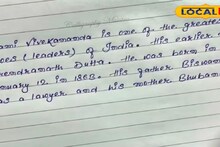 ami Vivekananda is one of the greates
oes (leaders) of India. His earlier
endranath Dutta. He was born in
nuary 12 in 1863. His father Biswan
as a lawyer and his mother Bhuban